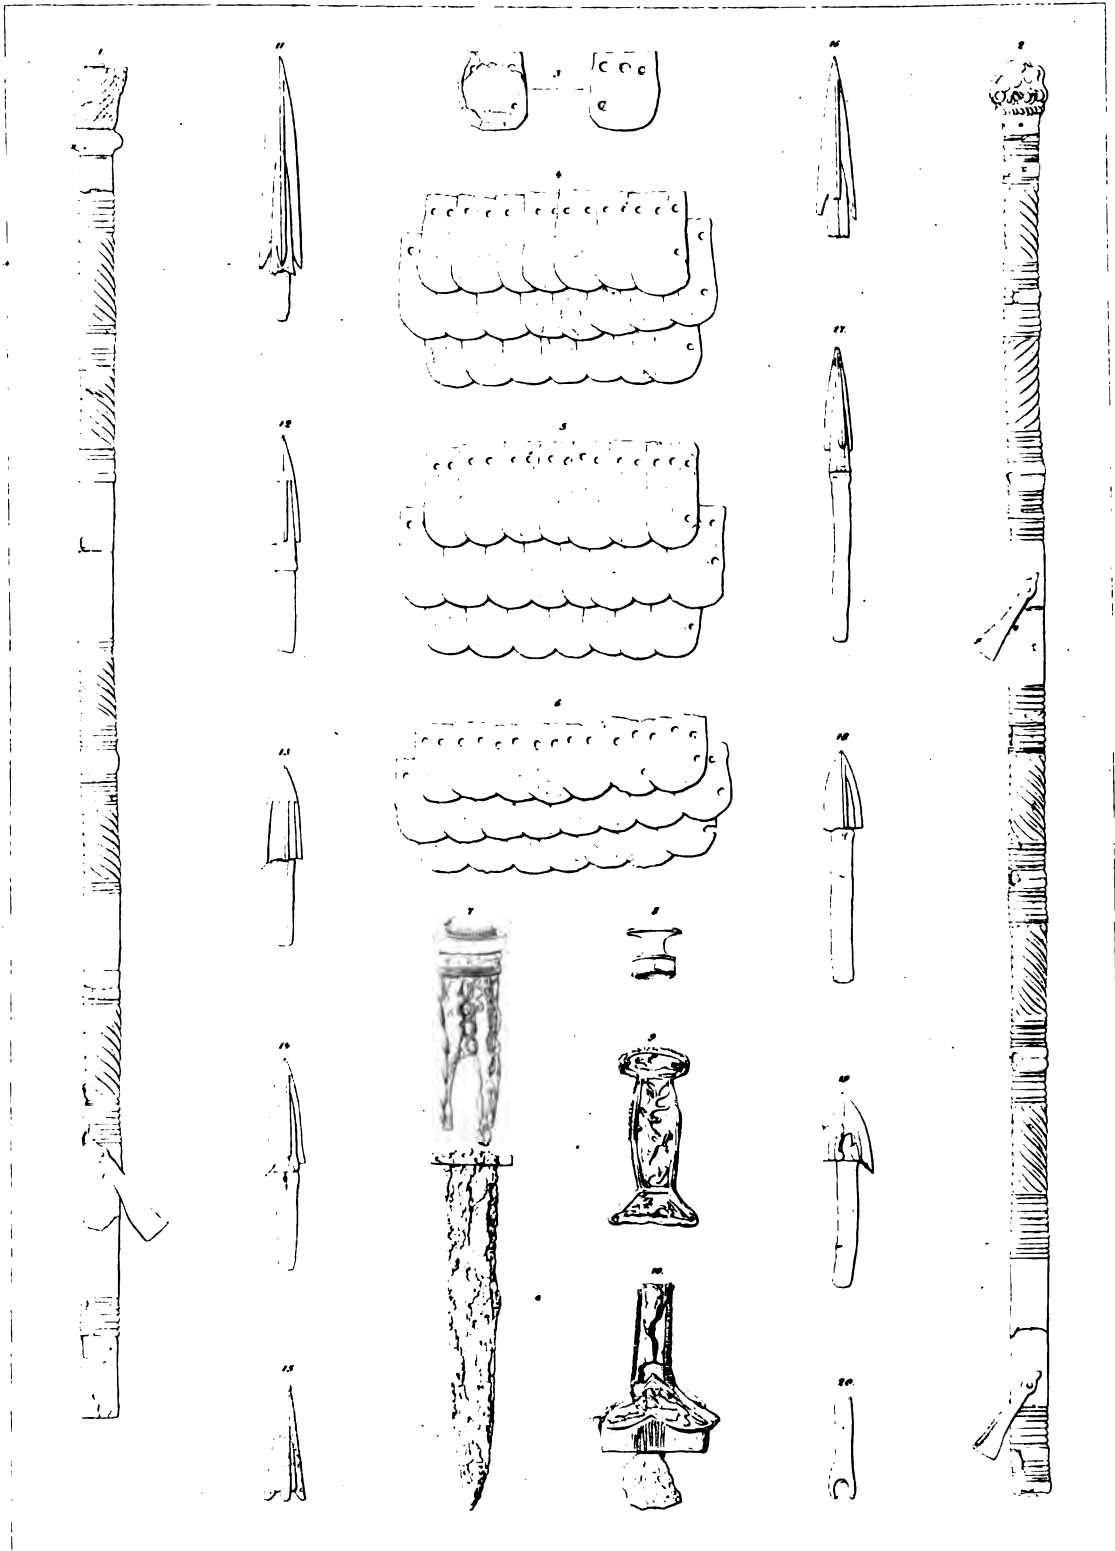 1
11
3
16
2
4
17.
12
5
6
18
13
7
8
14
9
19
10.
15
20.